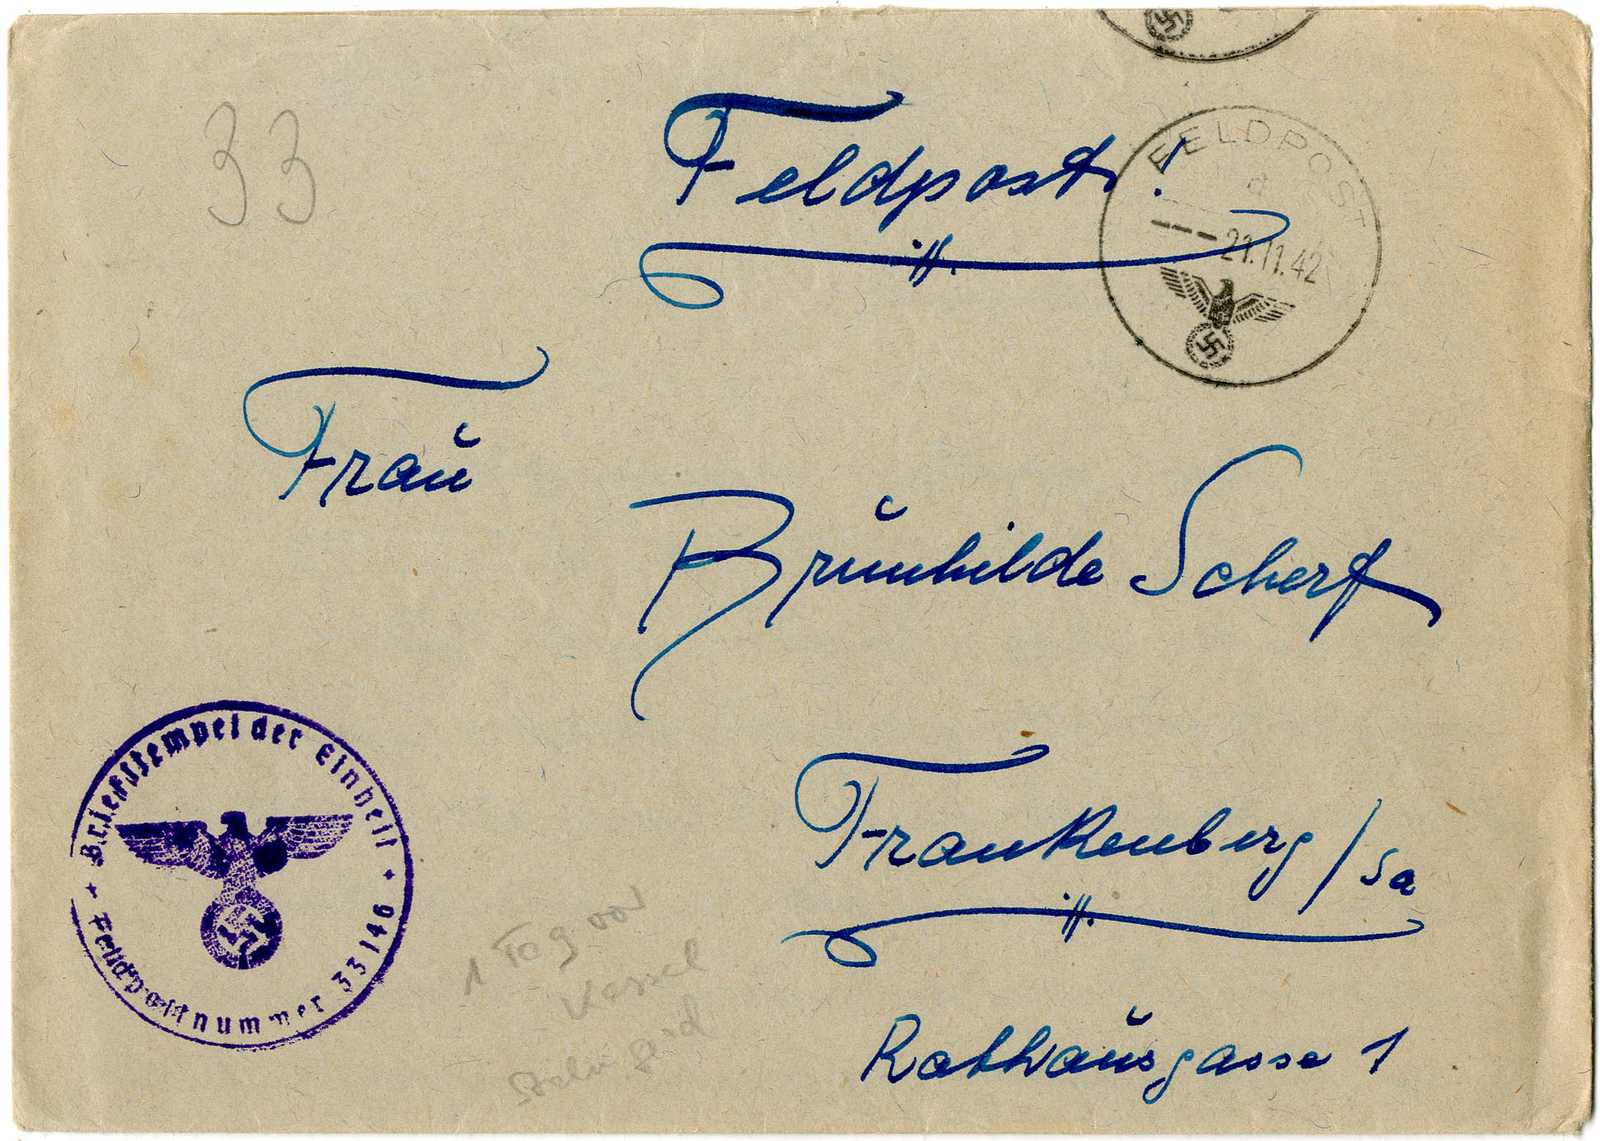 33
Feldpost!
FELDPOST
a
---21.11.42
Frau
Brunhilde Scherf
Briefstempel der Einheit
Feldpostnummer 33146
Frankenberg/Sa
1 Tag vor
Kessel
Rathausgasse 1